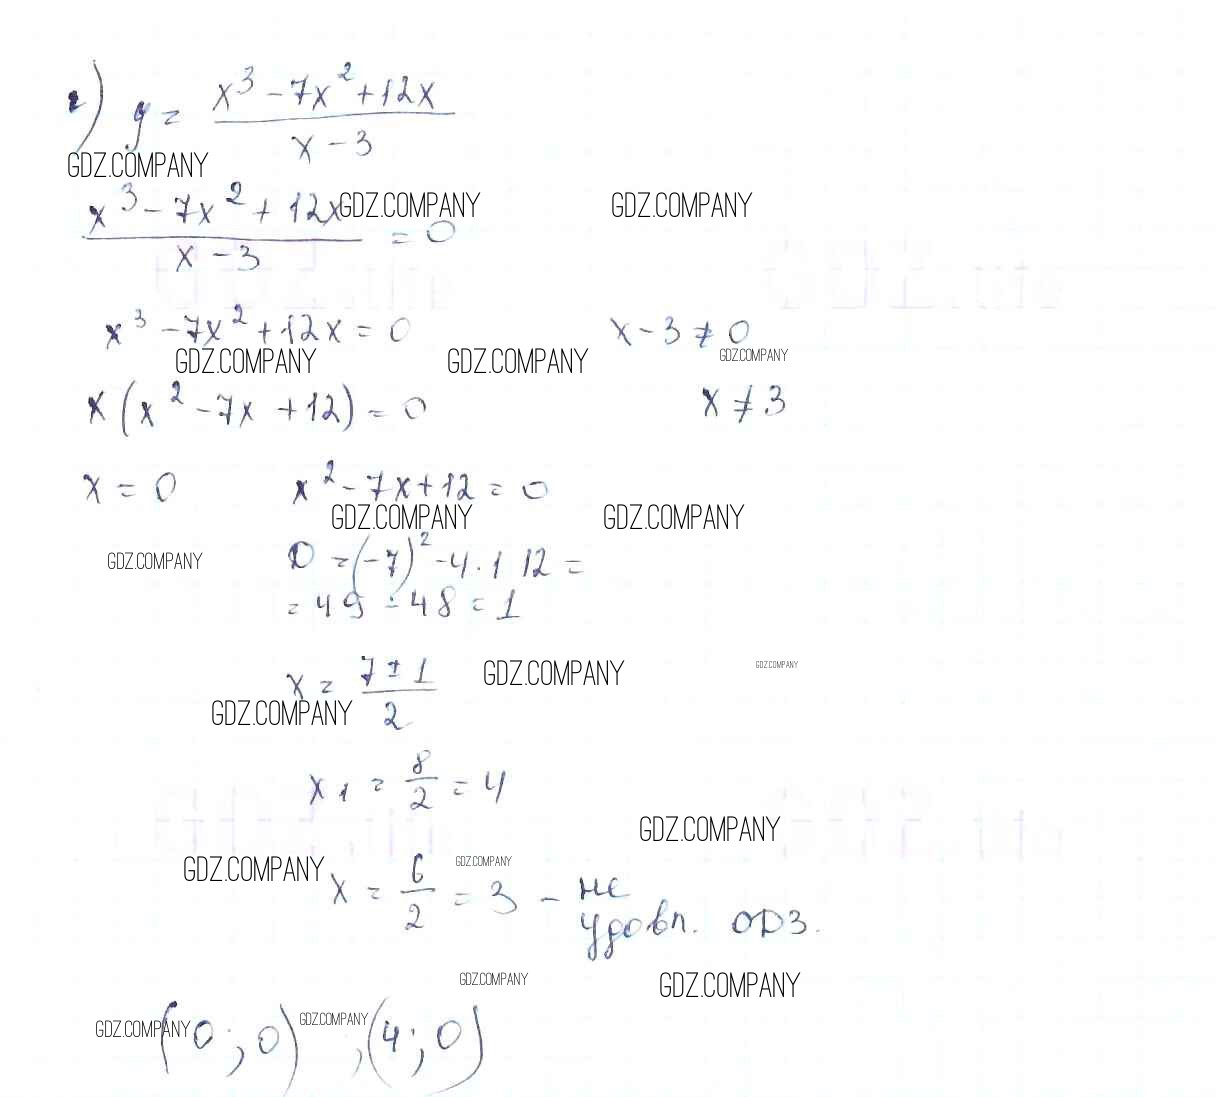 г) y = (x³ - 7x² + 12x)/(x - 3)
GDZ.COMPANY
(x³ - 7x² + 12x)/(x - 3) = 0
GDZ.COMPANY GDZ.COMPANY
x³ - 7x² + 12x = 0 x - 3 ≠ 0
GDZ.COMPANY GDZ.COMPANY GDZ.COMPANY
x (x² - 7x + 12) = 0 x ≠ 3
x = 0 x² - 7x + 12 = 0
GDZ.COMPANY GDZ.COMPANY
GDZ.COMPANY D = (-7)² - 4 · 1 12 =
= 49 - 48 = 1
x = (7 ± 1)/2
GDZ.COMPANY GDZ.COMPANY
GDZ.COMPANY
x₁ = 8/2 = 4
GDZ.COMPANY
GDZ.COMPANY GDZ.COMPANY
x = 6/2 = 3 - не
удовл. ОДЗ.
GDZ.COMPANY GDZ.COMPANY
GDZ.COMPANY GDZ.COMPANY
(0; 0) ; (4; 0)